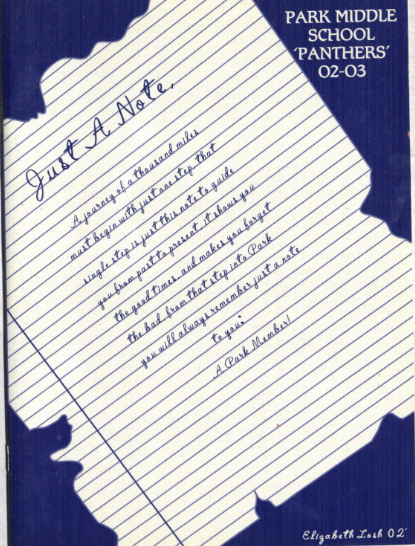 PARK MIDDLE
SCHOOL
'PANTHERS'
02-03
Just A Note,
A journey of a thousand miles
must begin with just one step. that
single step is just this note to guide
you from past to present, it shows you
the good times, and makes you forget
the bad. from that step into Park
you will always remember just a note
to you:
A Park Member!
Elizabeth Losh 02'